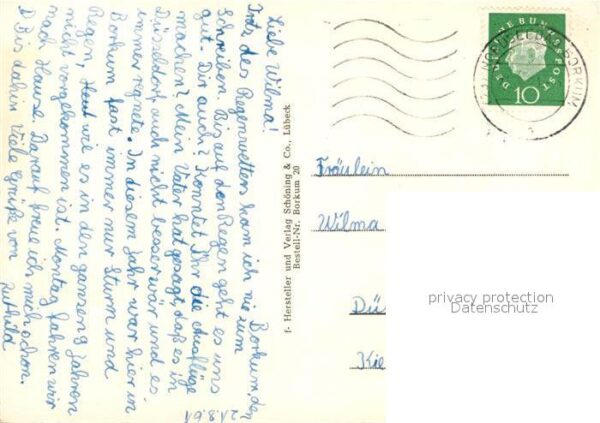 Borkum, den
21.8.61
Liebe Wilma!
Trotz des Regenwetters kam ich nie zum
Schreiben. Bis auf den Regen geht es uns
gut. Dir auch? Konntet Ihr die Ausflüge
machen? Mein Vater hat gesagt, daß es in
Düsseldorf auch nicht besser wär und es
immer regnete. In diesem Jahr war hier in
Borkum fast immer nur Sturm und
Regen, Haut wie es in den ganzen 9 Jahren
nicht vorgekommen ist. Montag fahren wir
nach Hause. Darauf freue ich mich schon.
Bis dahin Viele Grüße von
f- Hersteller und Verlag Schöning & Co., Lübeck
Bestell-Nr. Borkum 20
DEUTSCHE BUNDESPOST
10
NORDSEEBAD BORKUM
Fräulein
Wilma
Dü
Kie
privacy protection
Datenschutz